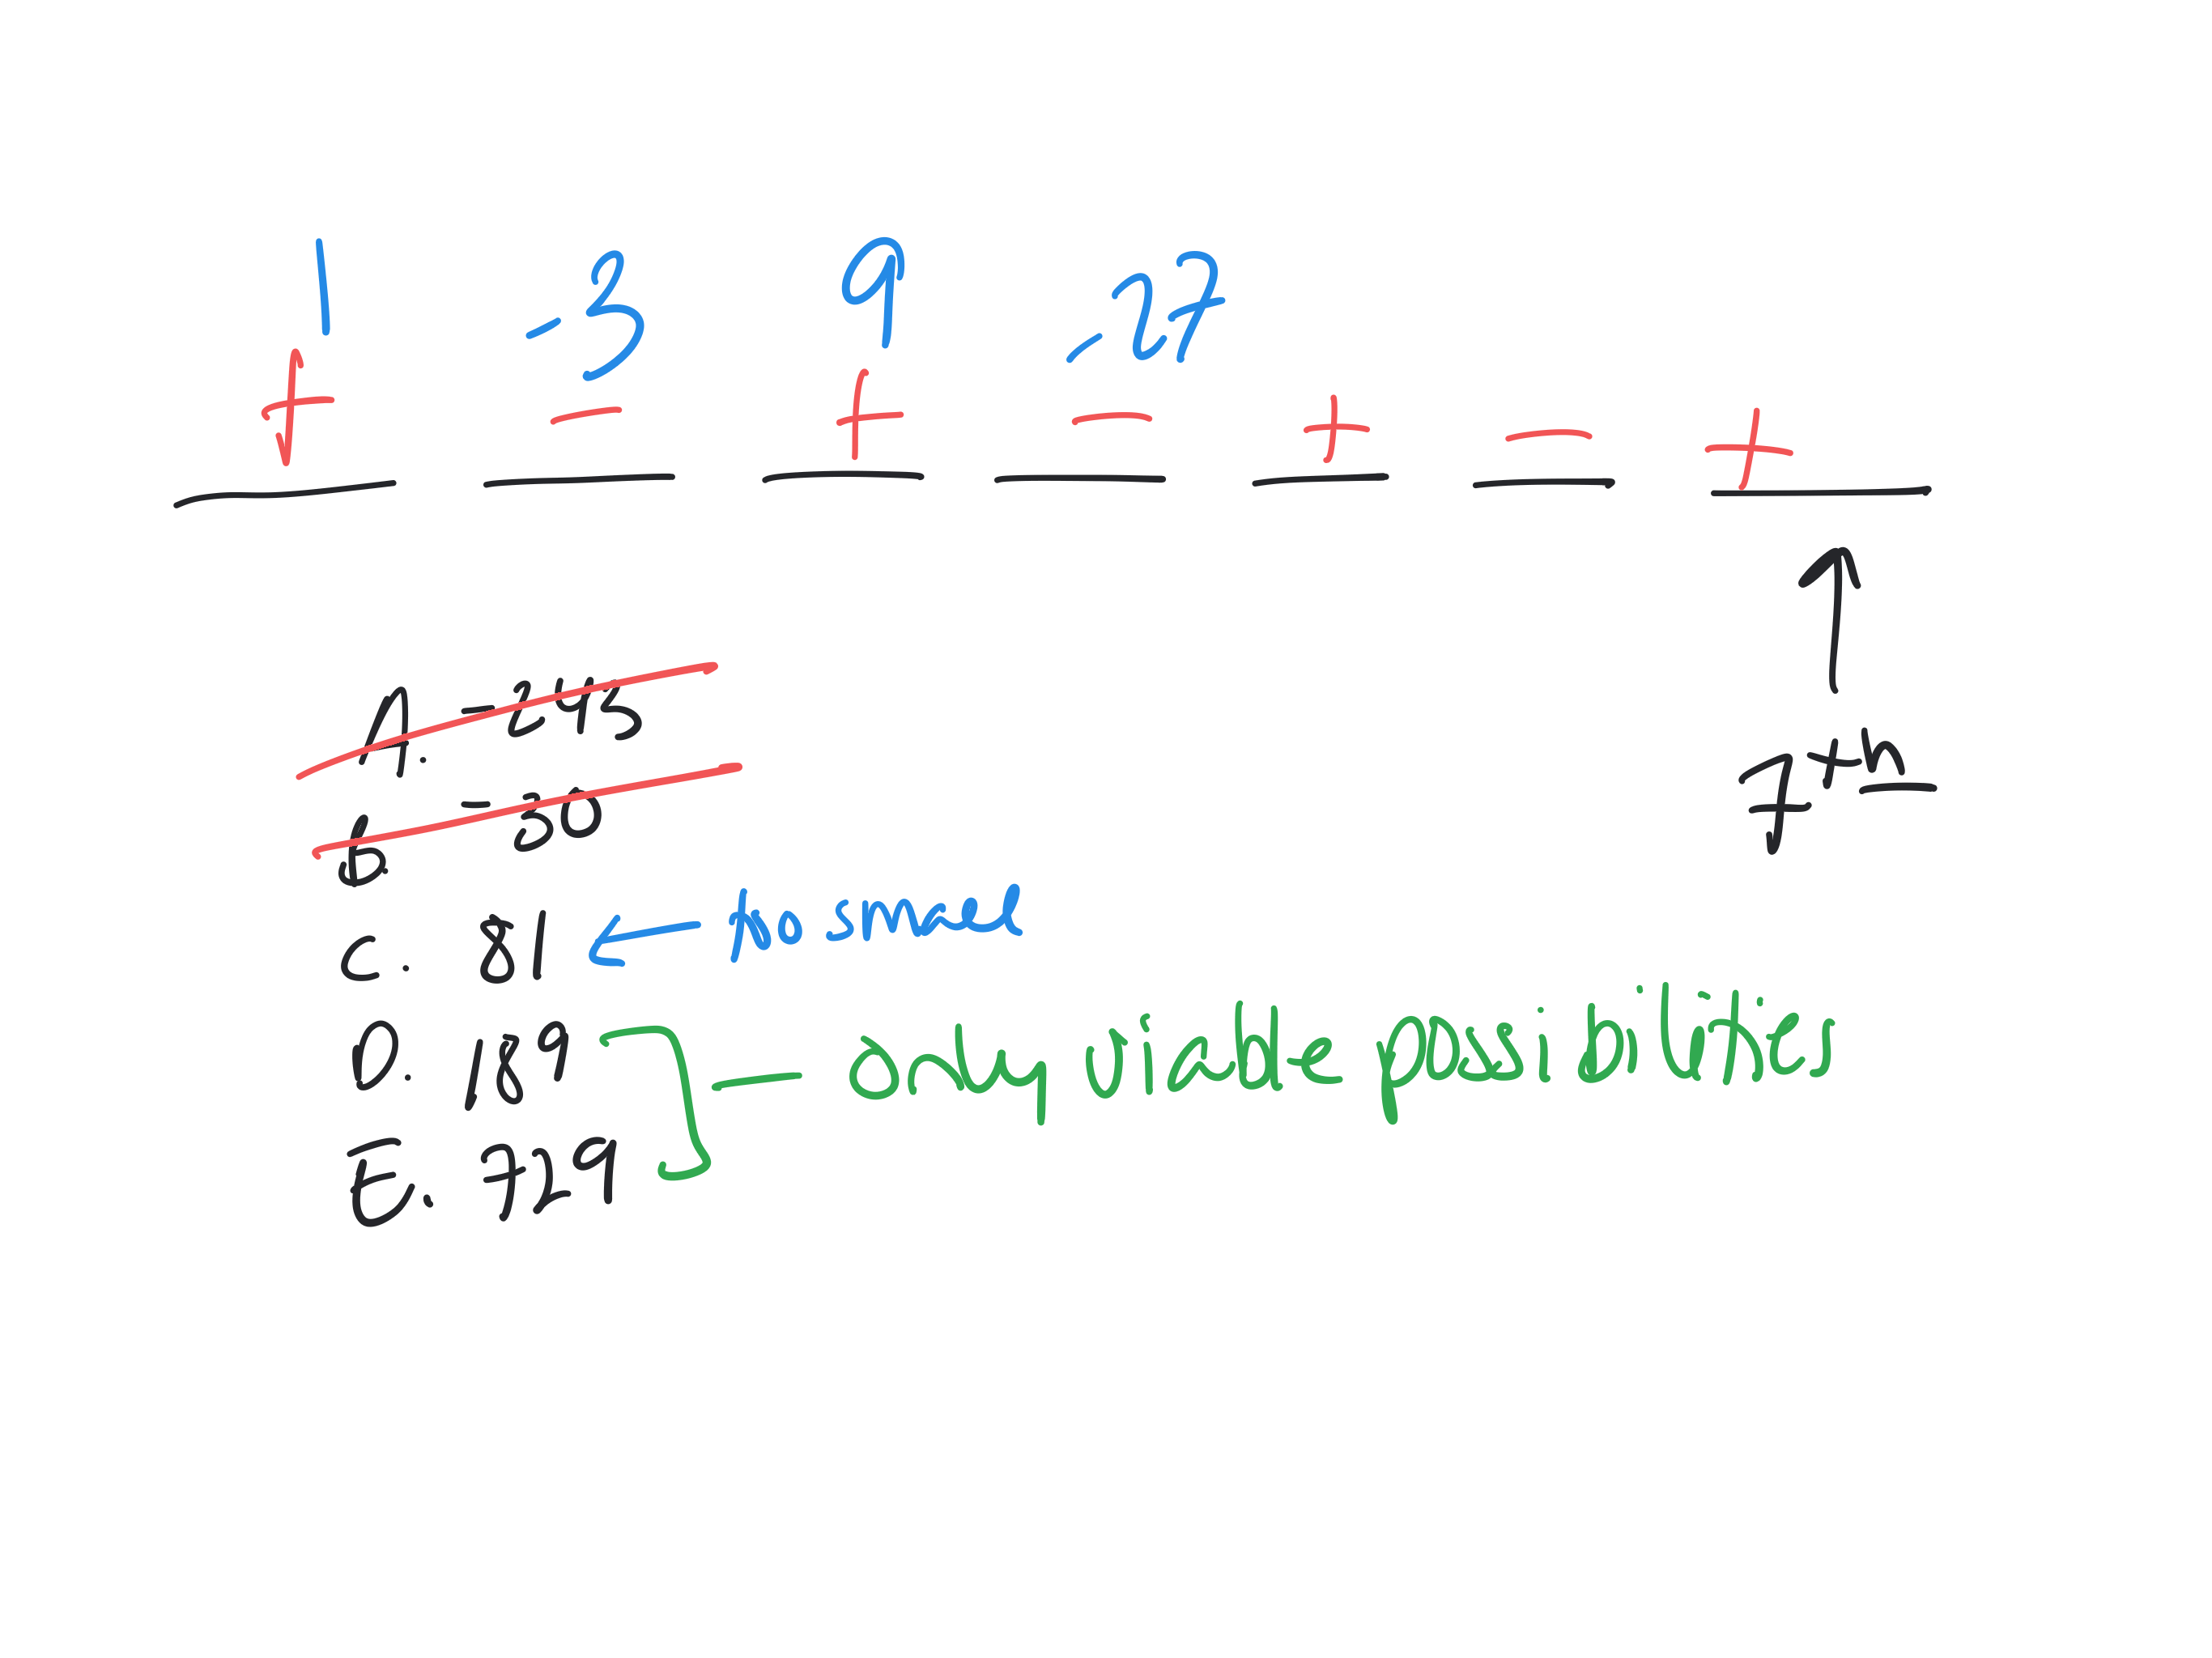 1 -3 9 -27
+ - + - + - +
7th
A. -243
B. -30
C. 81 ← too small
D. 1,89
E. 729
only viable possibilities